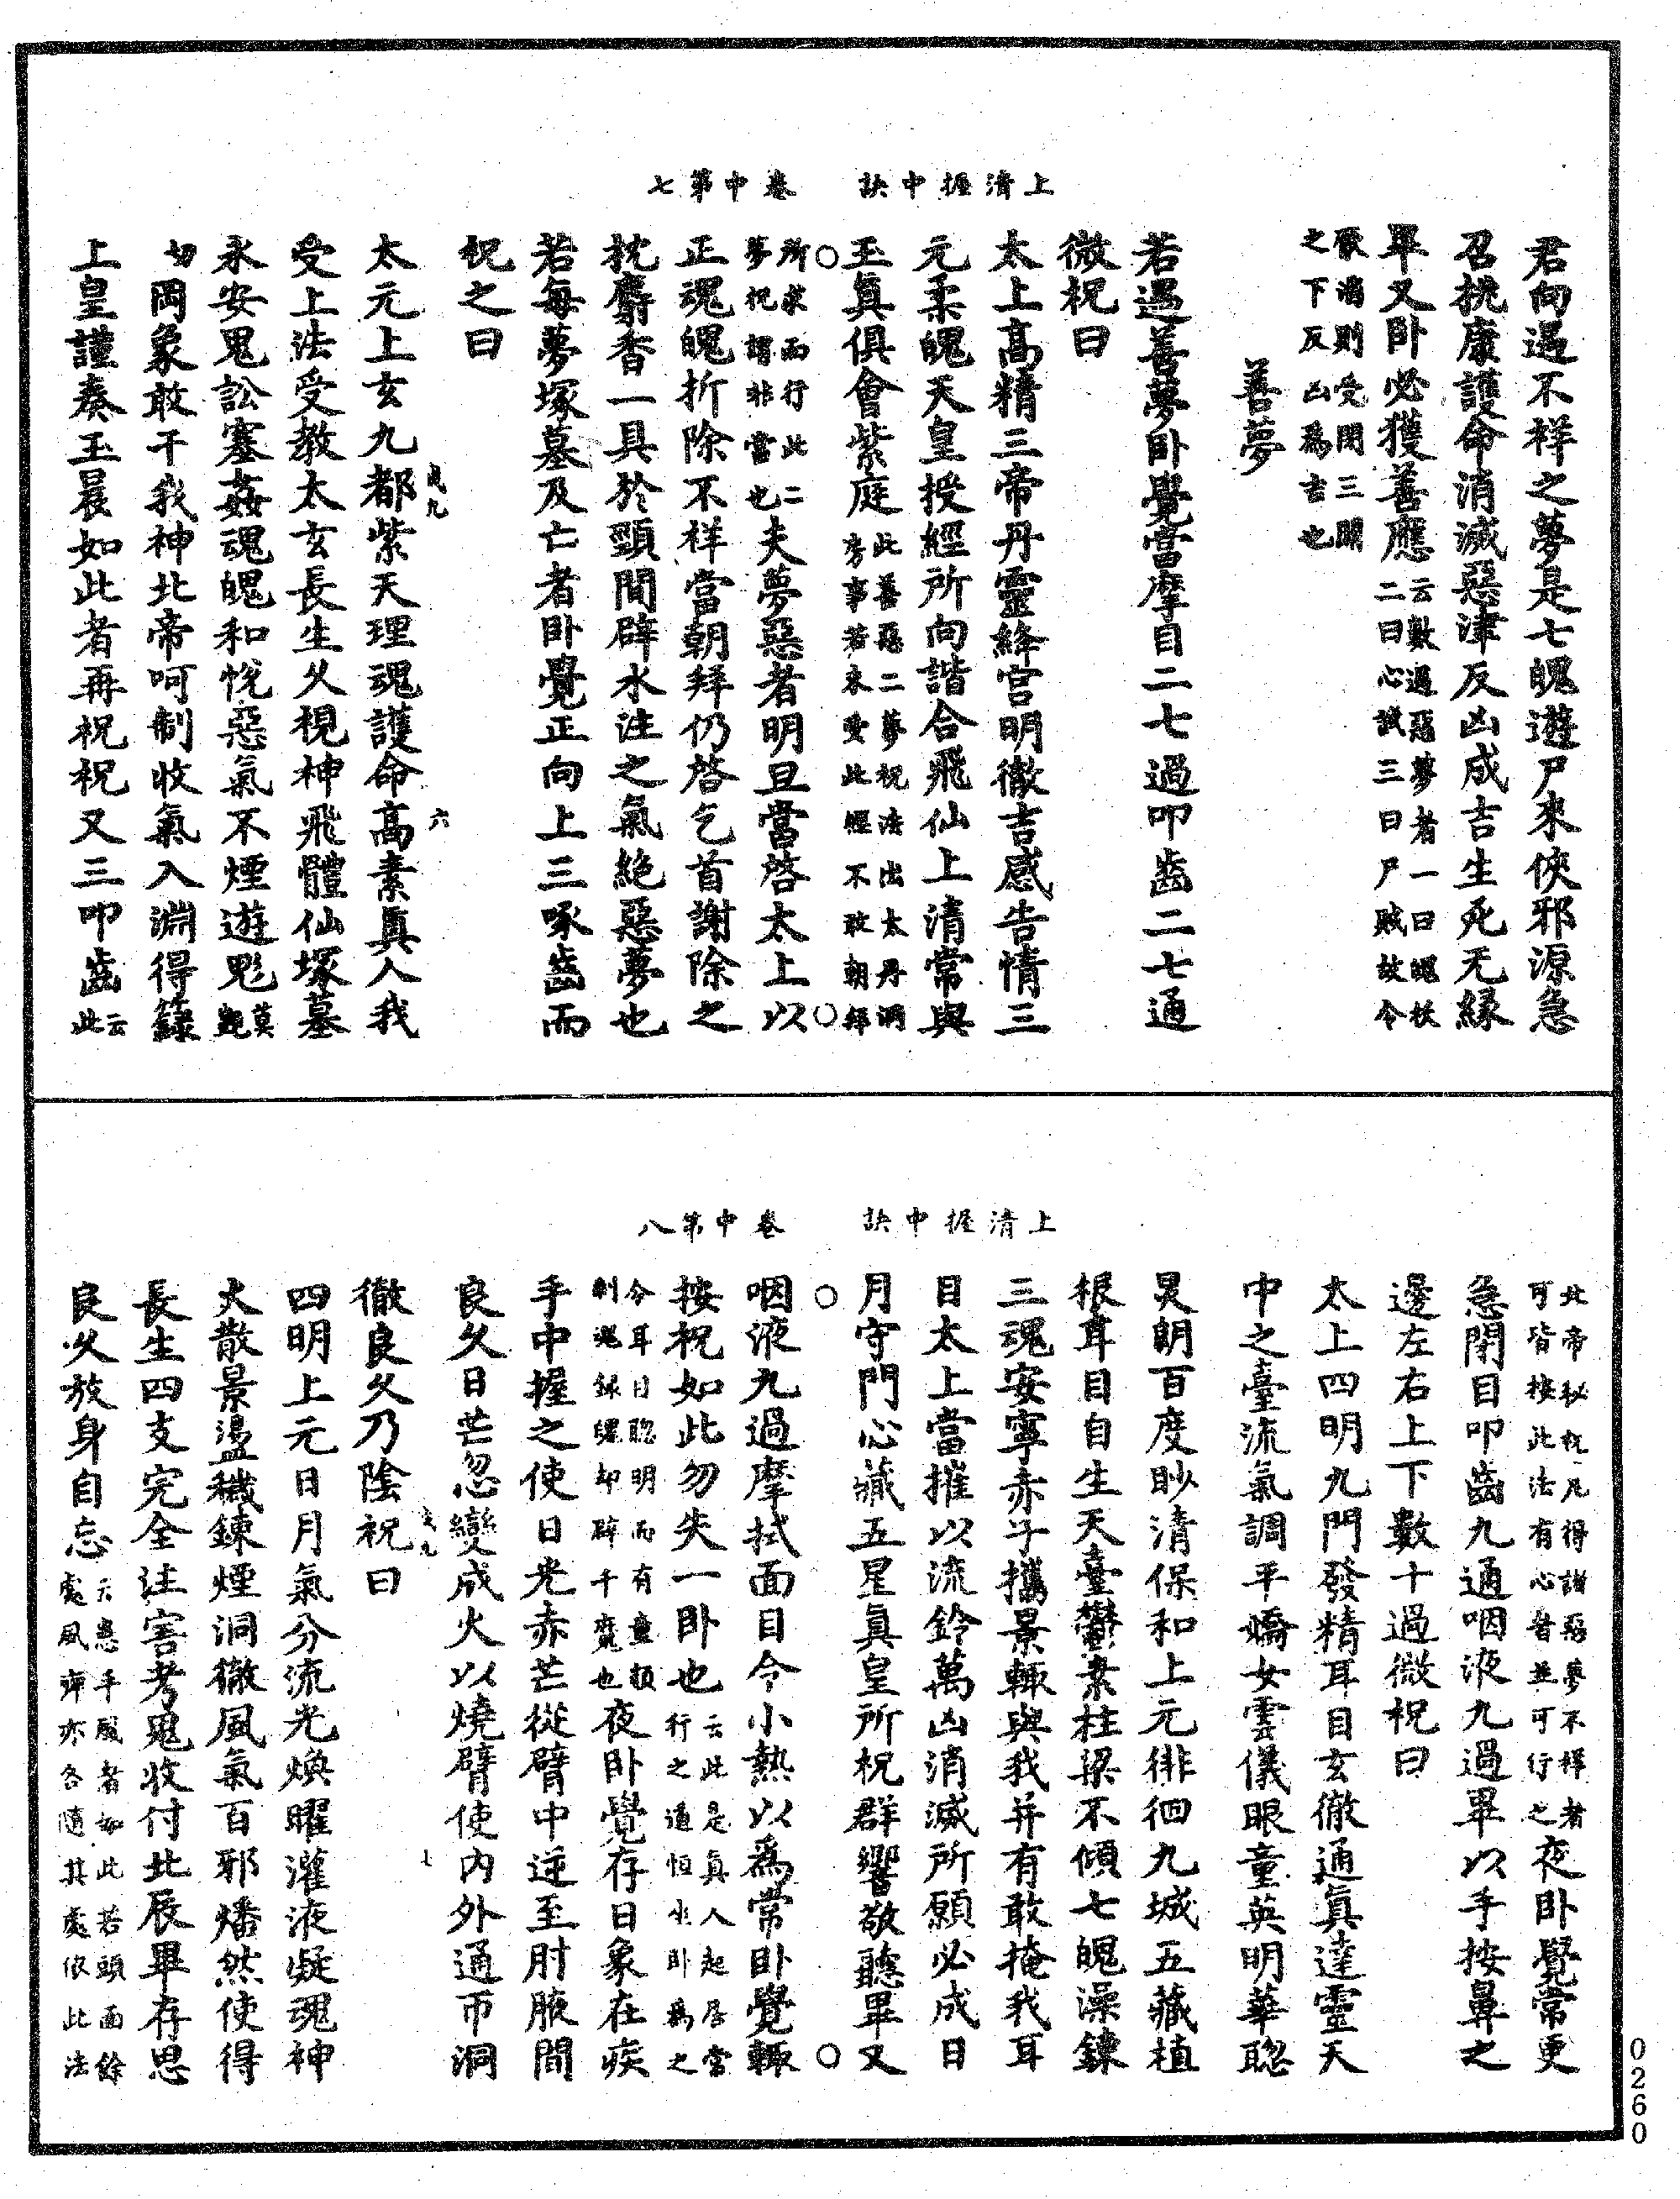 上清握中訣　卷中第七
君向遇不祥之夢是七魄遊尸來俠邪源急
召桃康護命消滅惡津反凶成吉生死无緣
畢又卧必獲善應云數遇惡夢者一曰魄妖二曰心試三曰尸賊故令
厭消則受閉三關之下反凶爲吉也
善夢
若遇善夢卧覺當摩目二七過叩齒二七通
微祝曰
太上高精三帝丹靈絳宮明徹吉感告情三
元柔魄天皇授經所向諧合飛仙上清常與
玉眞俱會紫庭此善惡二夢祝法出太丹洞房事若未受此經不敢朝拜
所求而行此二夢祝謂非當也夫夢惡者明旦當啓太上以
正魂魄折除不祥當朝拜仍啓乞首謝除之
枕麝香一具於頸間辟水注之氣絶惡夢也
若每夢塚墓及亡者卧覺正向上三啄齒而
祝之曰
太元上玄九都紫天理魂護命高素眞人我
受上法受教太玄長生久視神飛體仙塚墓
永安鬼訟塞姦魂魄和悅惡氣不煙遊魁莫
切罔象敢干我神北帝呵制收氣入淵得籙
上皇謹奏玉晨如此者再祝祝又三叩齒云此
上清握中訣　卷中第八
北帝秘祝凡得諸惡夢不祥者可皆按此法有心昔並可行之夜卧覺常更
急閉目叩齒九通咽液九過畢以手按鼻之
邊左右上下數十過微祝曰
太上四明九門發精耳目玄徹通眞達靈天
中之臺流氣調平嬌女雲儀眼童英明華聰
晃朗百度眇清保和上元徘徊九城五藏植
根耳目自生天臺鬱素柱梁不傾七魄澡鍊
三魂安寧赤子攜景輒與我并有敢掩我耳
目太上當摧以流鈴萬凶消滅所願必成日
月守門心藏五星眞皇所祝群響敬聽畢又
咽液九過摩拭面目令小熱以爲常卧覺輒
按祝如此勿失一卧也云此是眞人起居當行之道恒坐卧爲之
令耳目聰明而有童顏制魂録魄却辟千魔也夜卧覺存日象在疾
手中握之使日光赤芒從臂中逆至肘腋間
良久日芒忽變成火以燒臂使内外通帀洞
徹良久乃陰祝曰
四明上元日月氣分流光煥曜灌液凝魂神
火散景盪穢鍊煙洞徹風氣百邪燔然使得
長生四支完全注害考鬼收付北辰畢存思
良久放身自忘云患手服者如此若頭面餘處風痹亦各隨其處依此法
0260